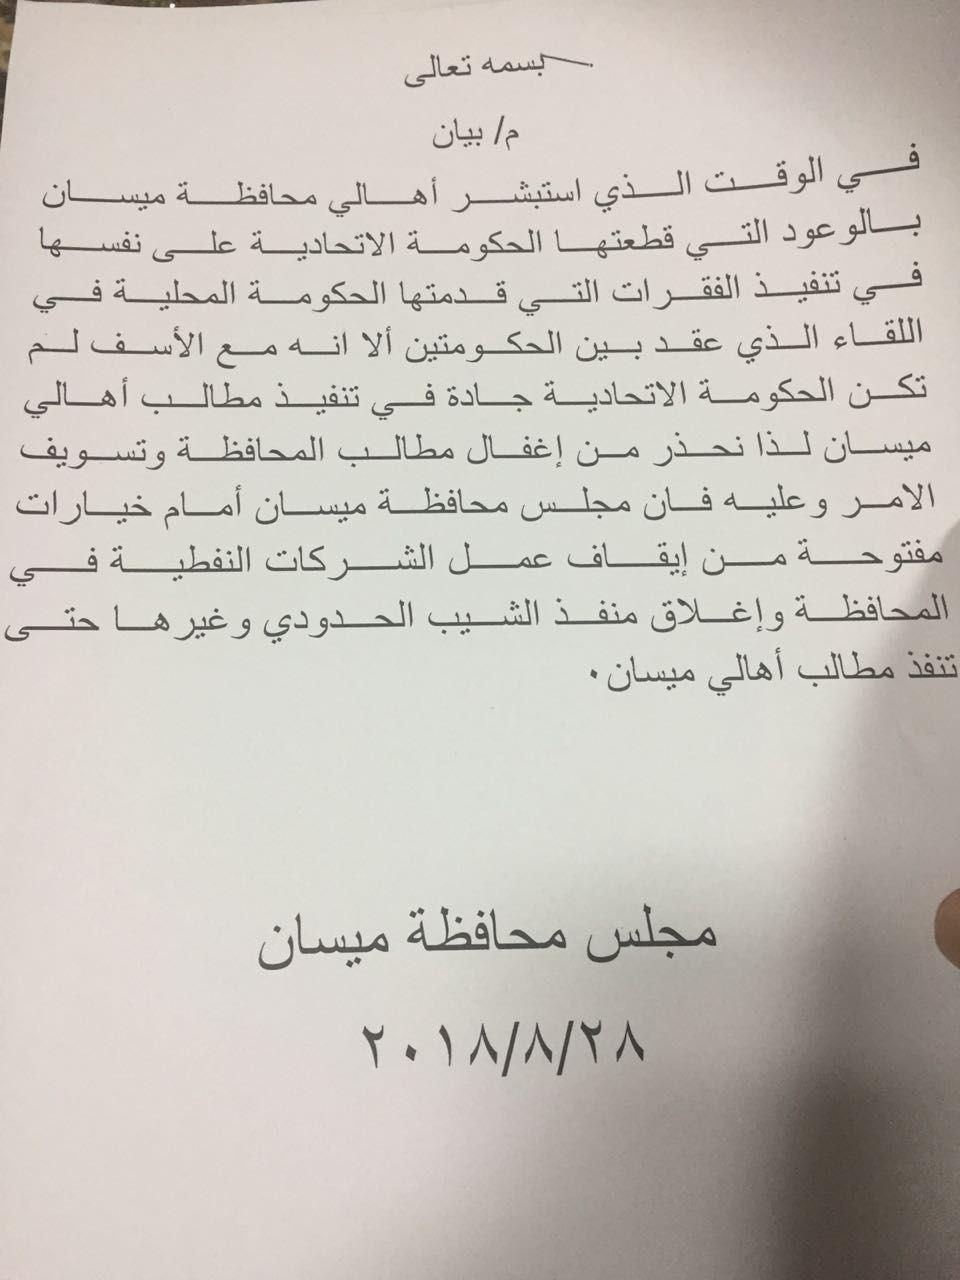 بسمه تعالى
م/ بيان
في الوقت الذي استبشر أهالي محافظة ميسان
بالوعود التي قطعتها الحكومة الاتحادية على نفسها
في تنفيذ الفقرات التي قدمتها الحكومة المحلية في
اللقاء الذي عقد بين الحكومتين ألا انه مع الأسف لم
تكن الحكومة الاتحادية جادة في تنفيذ مطالب أهالي
ميسان لذا نحذر من إغفال مطالب المحافظة وتسويف
الامر وعليه فان مجلس محافظة ميسان أمام خيارات
مفتوحة من إيقاف عمل الشركات النفطية في
المحافظة وإغلاق منفذ الشيب الحدودي وغيرها حتى
تنفذ مطالب أهالي ميسان.
مجلس محافظة ميسان
٢٠١٨/٨/٢٨